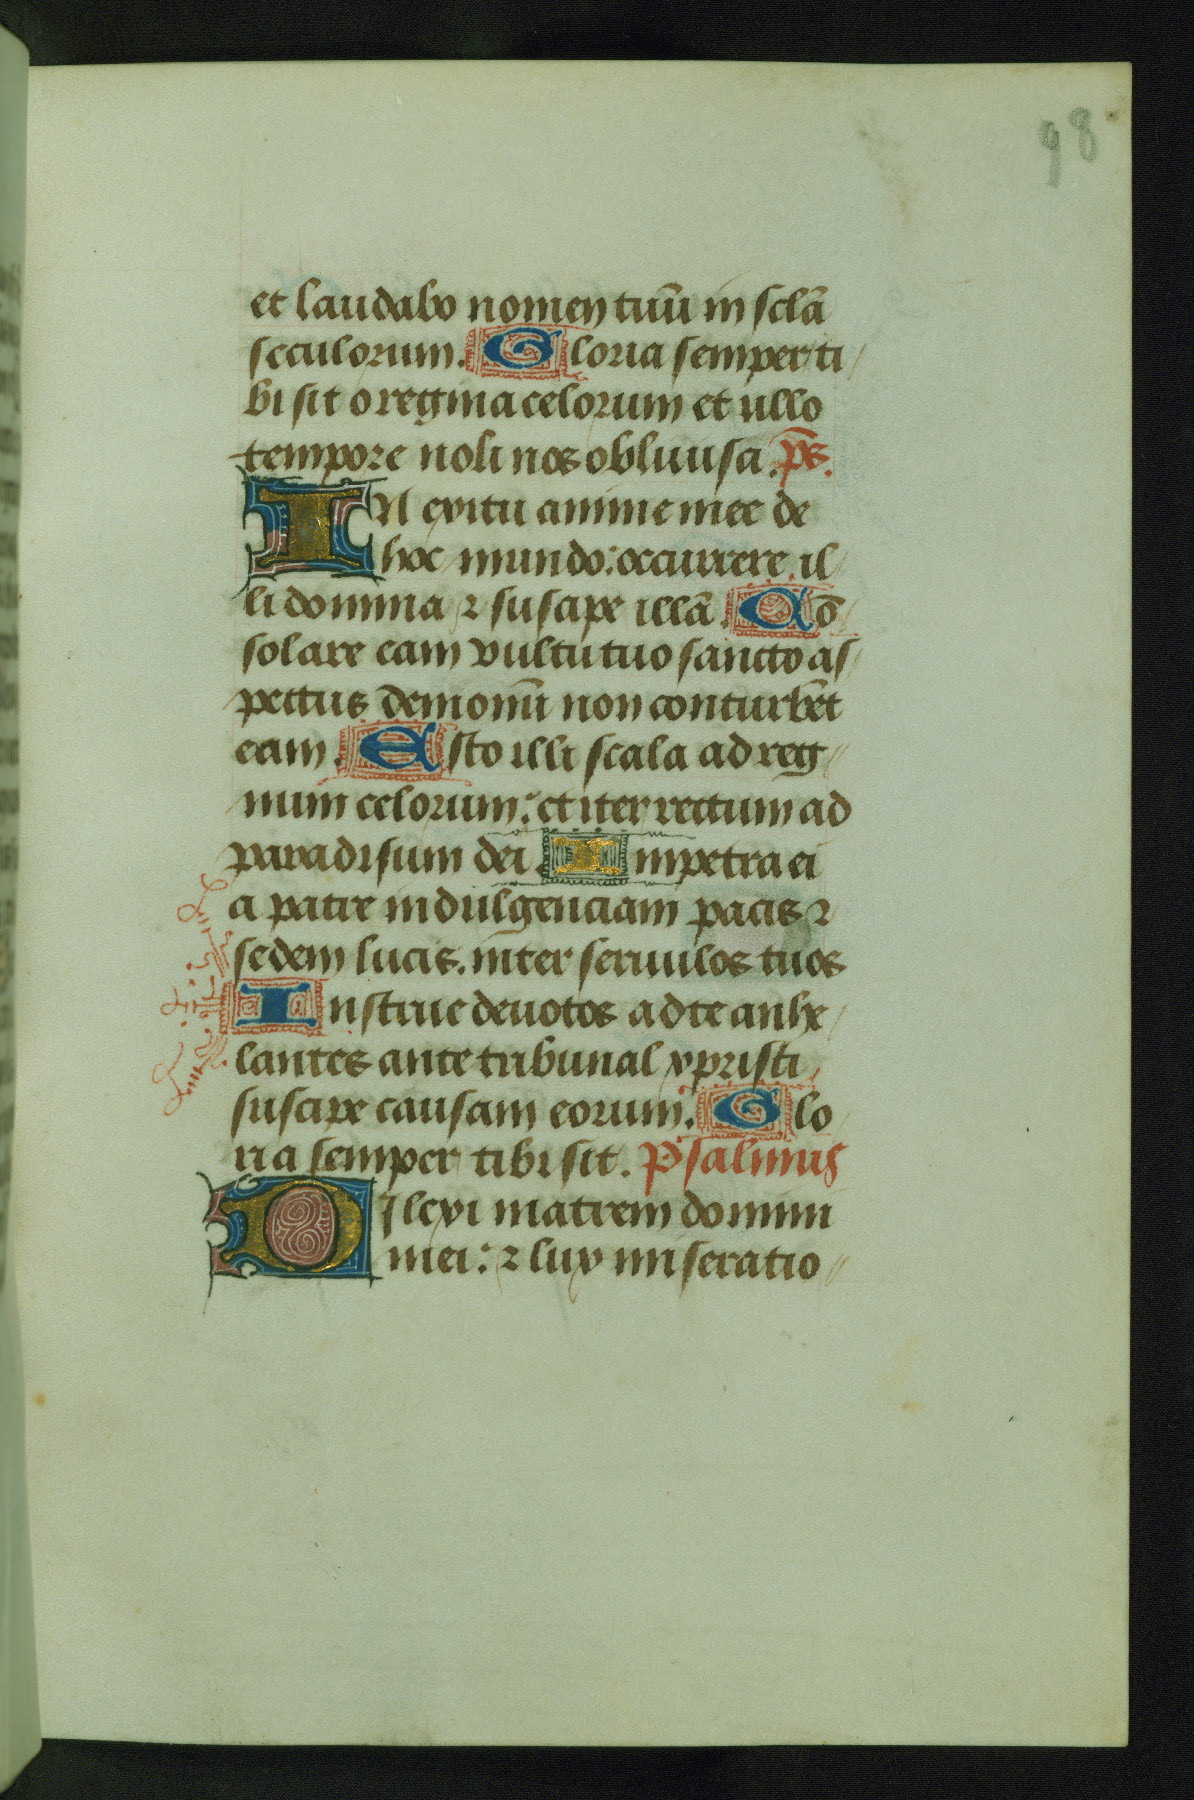 98
et laudabo nomen tuū in sclā
seculorum. Gloria semper ti
bi sit o regina celorum et ullo
tempore noli nos obliuisci. ps̄.
IN exitu anime mee de
hoc mundo: occurrere il
li domina ⁊ suscipe illā. Cō
solare eam vultu tuo sancto as
pectus demonū non conturbēt
eam. Esto illi scala ad reg
num celorum: et iter rectum ad
paradisum dei. Impetra ei
a patre indulgenciam pacis ⁊
sedem lucis. inter seruulos tuos
Instrue deuotos ad te anhe
lantes ante tribunal xpristi
suscipe causam eorum. Glo
ria semper tibi sit. Psalmus
DIlexi matrem domini
mei: ⁊ lux miseratio